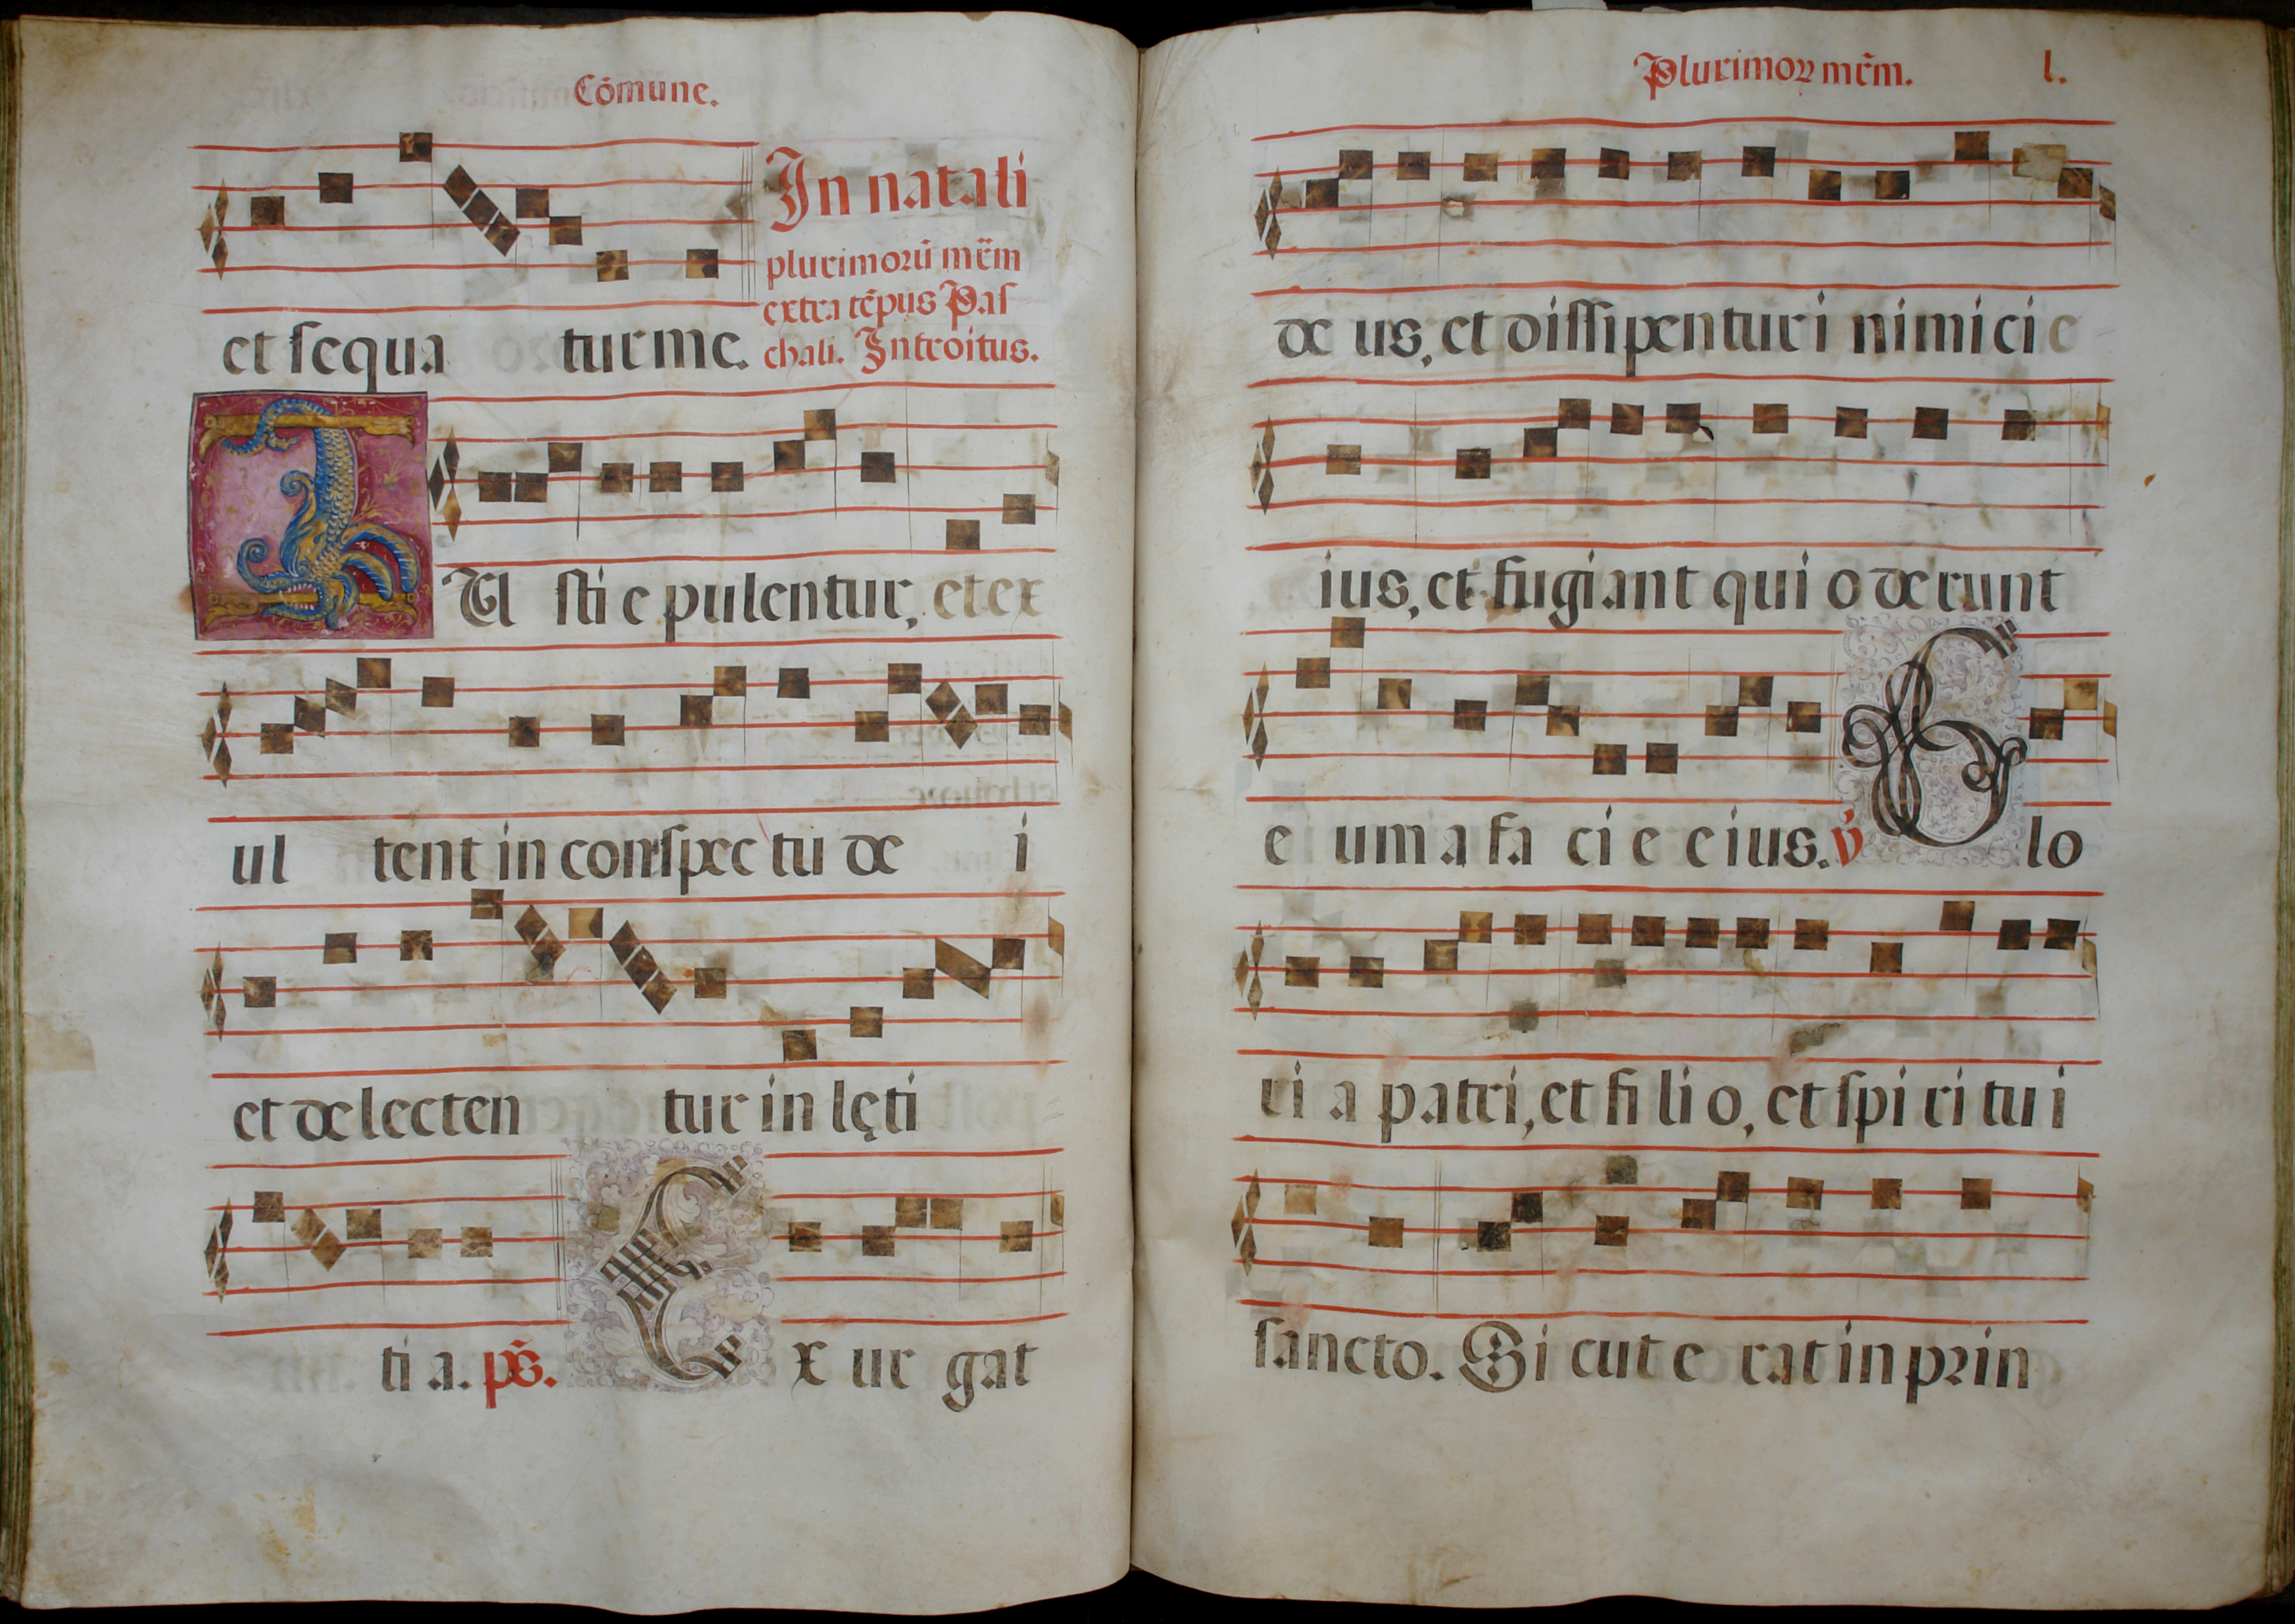 Cõmune.
et sequa tur me.
In natali
plurimorũ mr̃m
extra tẽpus Pas
chali. Introitus.
IVsti e pulentur, et ex
ul tent in conspec tu de i
et delecten tur in lęti
ti a. ps̃. Ex ur gat
Plurimoꝝ mr̃m. l.
de us, et dissipentur i nimici e
ius, et fugiant qui o derunt
e um a fa ci e eius. v̇ Glo
ri a patri, et fi li o, et spi ri tu i
sancto. Si cut e rat in prin